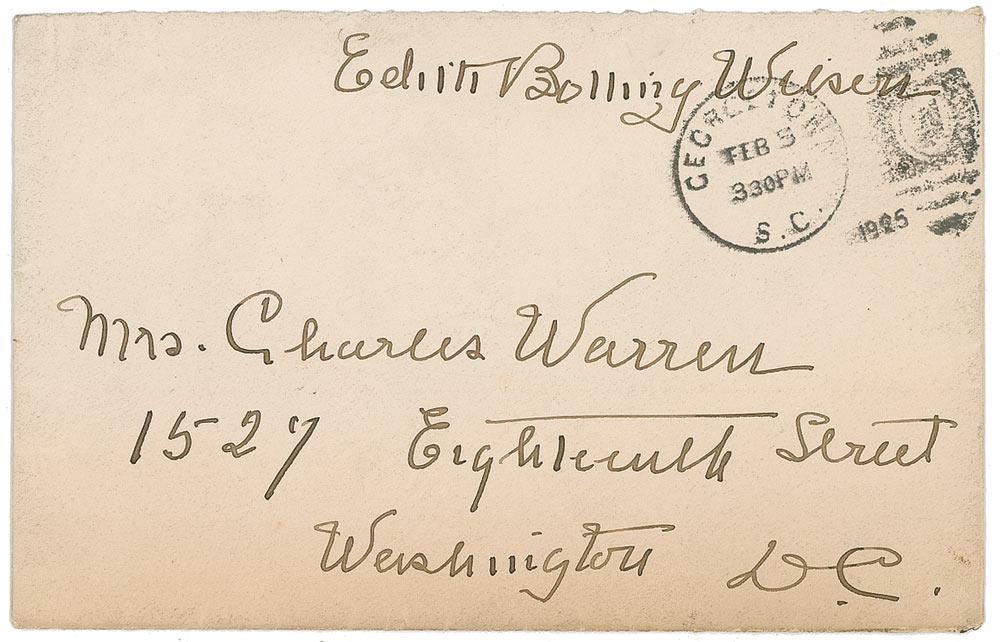 Edith Bolling Wilson
GEORGETOWN
FEB 3
330PM
S.C.
1925
Mrs. Charles Warren
1527 Eighteenth Street
Washington D.C.